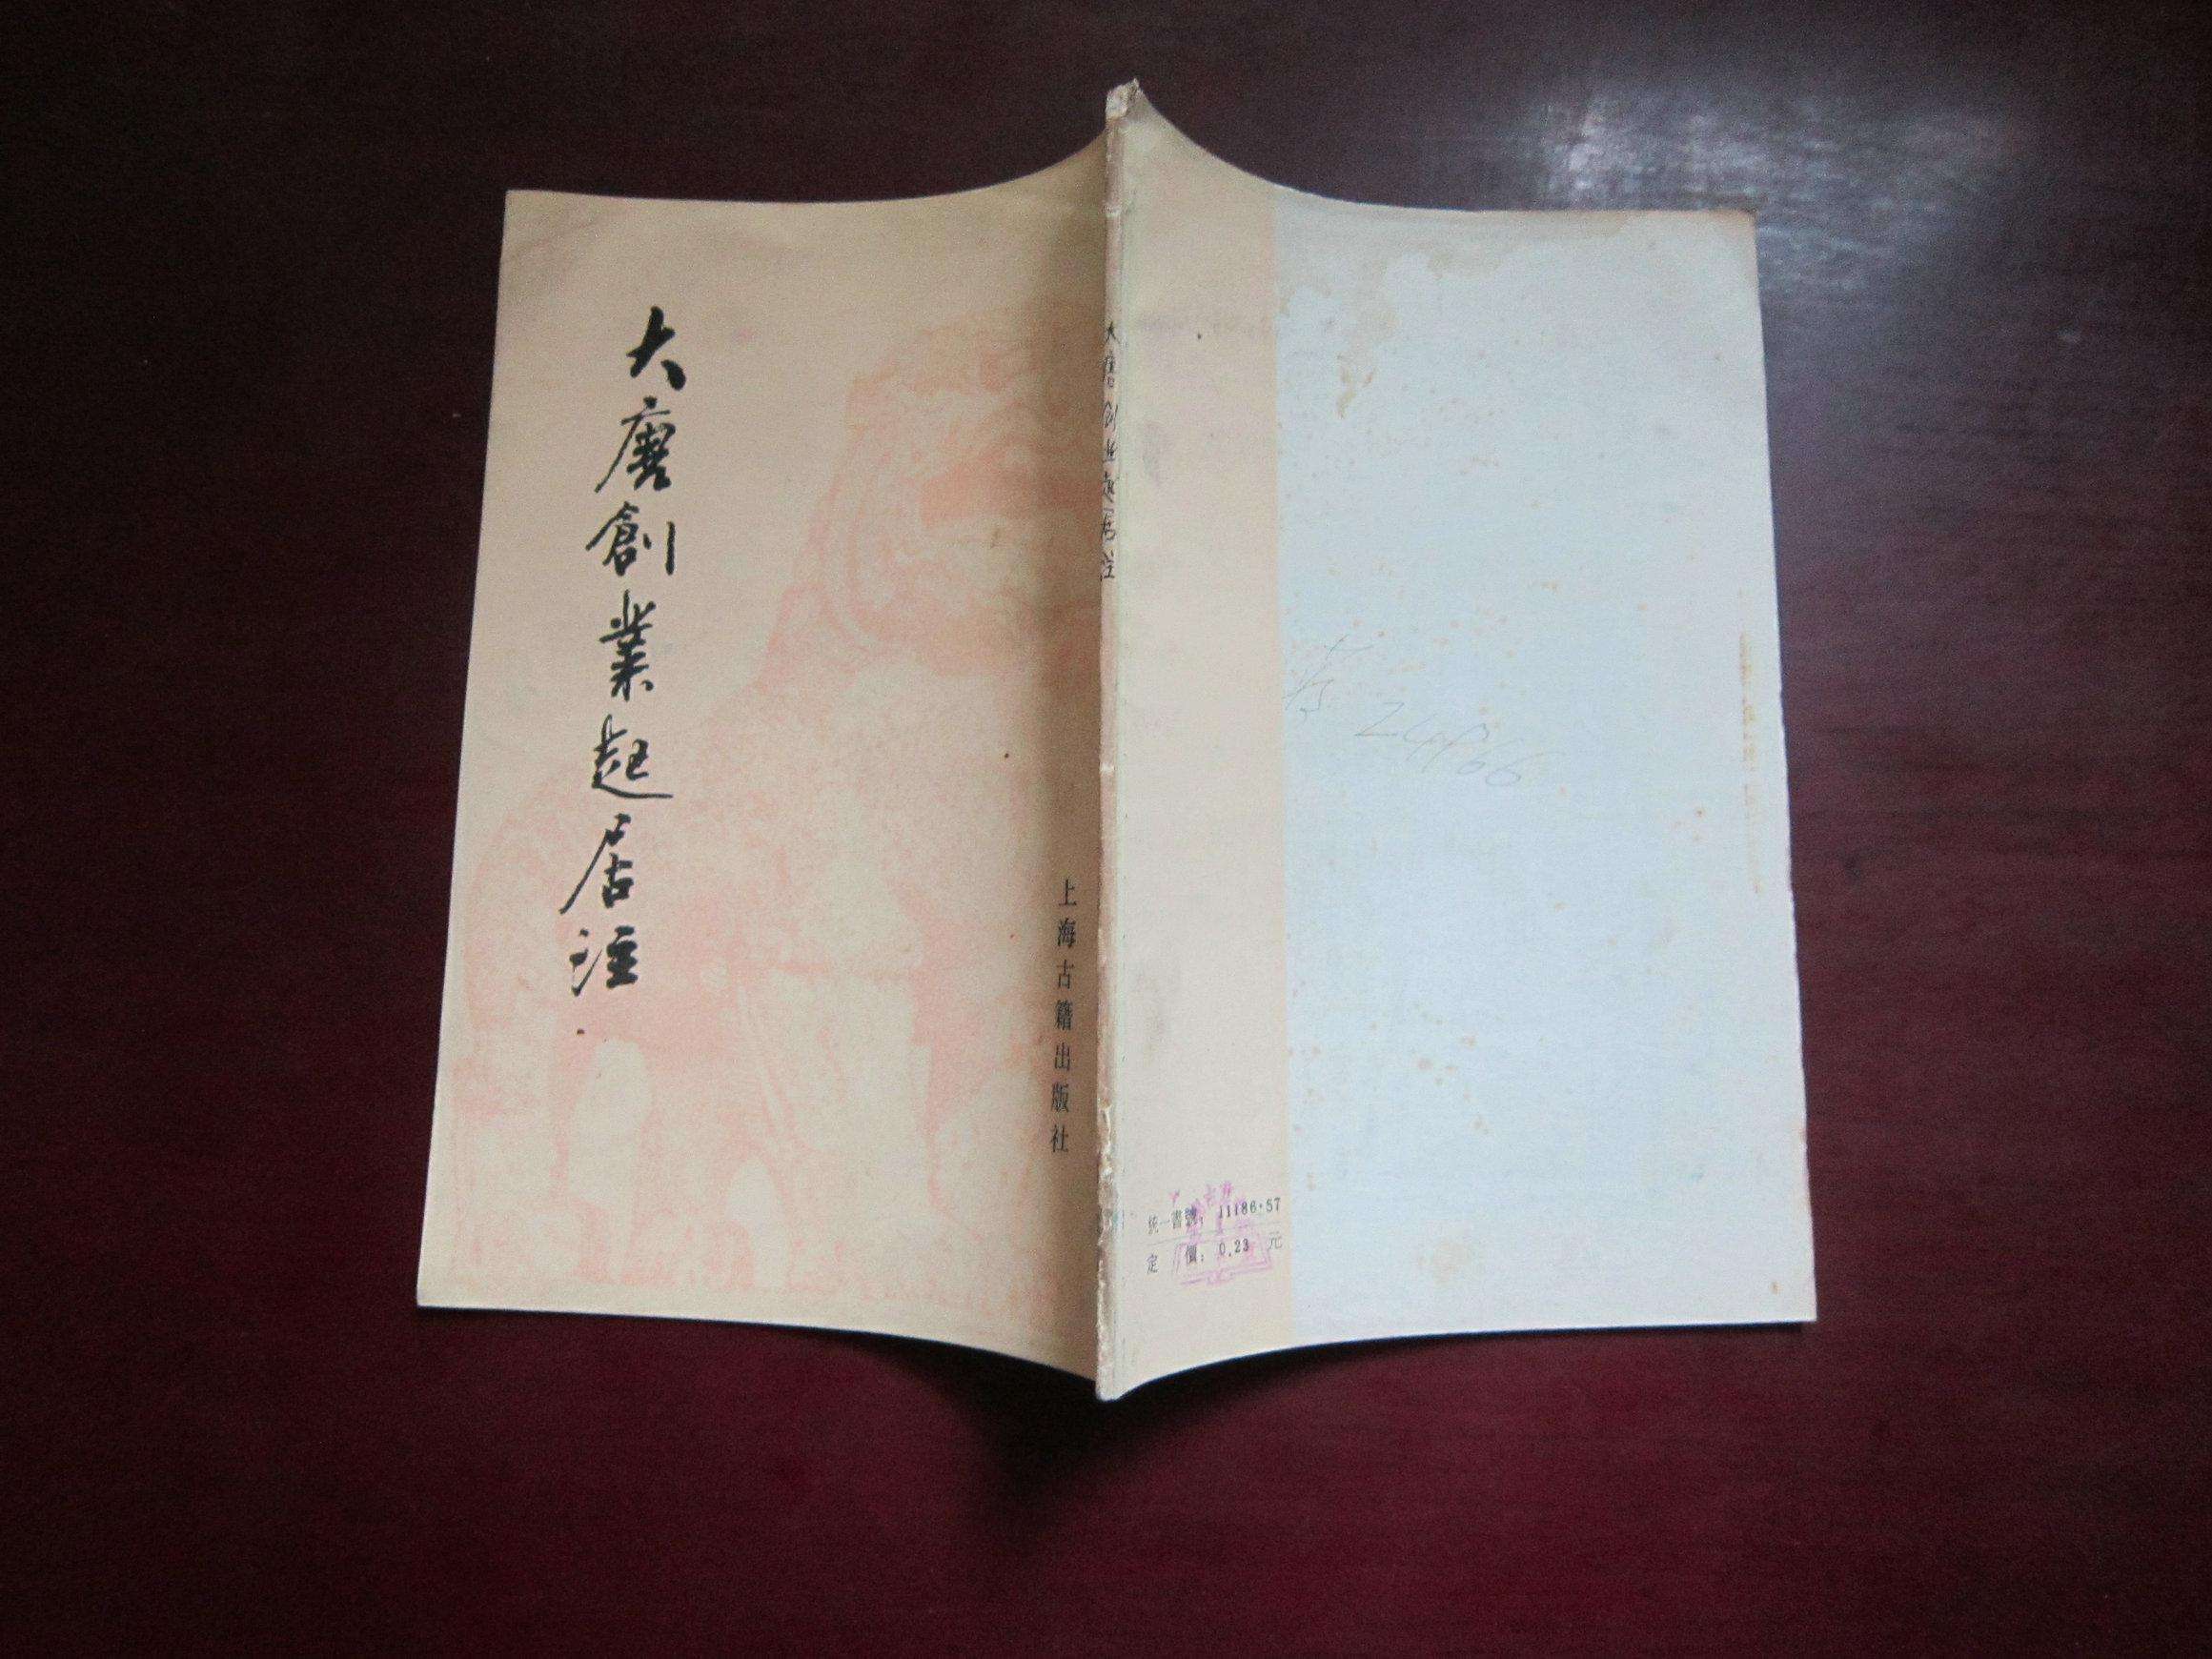 大唐創業起居注
上海古籍出版社
大唐创业起居注
统一書號：11186·57
定 價：0.23 元